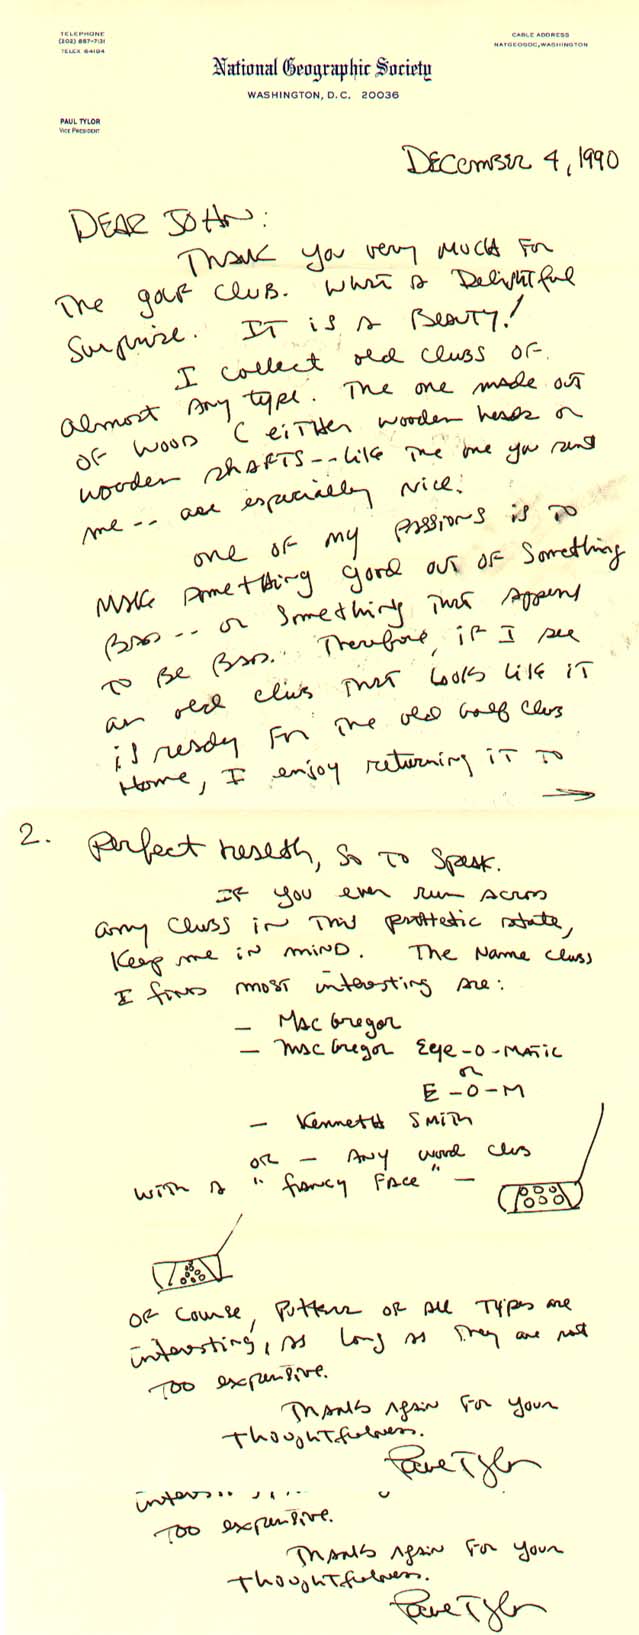 TELEPHONE
(202) 857-7131
TELEX 64194
CABLE ADDRESS
NATGEOSOC, WASHINGTON
National Geographic Society
WASHINGTON, D.C. 20036
PAUL TYLOR
VICE PRESIDENT
DECEMBER 4, 1990
DEAR JOHN:
THANK you very MUCH FOR
THE golf CLUB. WHAT A Delightful
Surprise. IT is A BEAUTY!
I collect old clubs OF
almost any type. The one made out
OF WOOD (EITHER wooden heads or
wooden SHAFTS -- like THE one you sent
me -- are especially nice.
one OF my passions is TO
MAKE something good out OF Something
BAD -- or Something THAT Appears
TO BE BAD. Therefore, if I see
an old club THAT looks like IT
is ready FOR THE old Golf Club
Home, I enjoy returning IT TO
→
2. Perfect health, so TO Speak.
IF you ever run across
any Clubs in This pathetic state,
Keep me in MIND. THE Name clubs
I find most interesting are:
- MacGregor
- MacGregor Eye-O-MATIC
or
E-O-M
- Kenneth SMITH
OR - ANY wood club
WITH A "fancy FACE" -
OF Course, Putters OF All Types are
interesting, as long as They are not
TOO expensive.
THANKS Again FOR Your
thoughtfulness.
Paul Tylor
TOO expensive.
THANKS Again FOR Your
thoughtfulness.
Paul Tylor